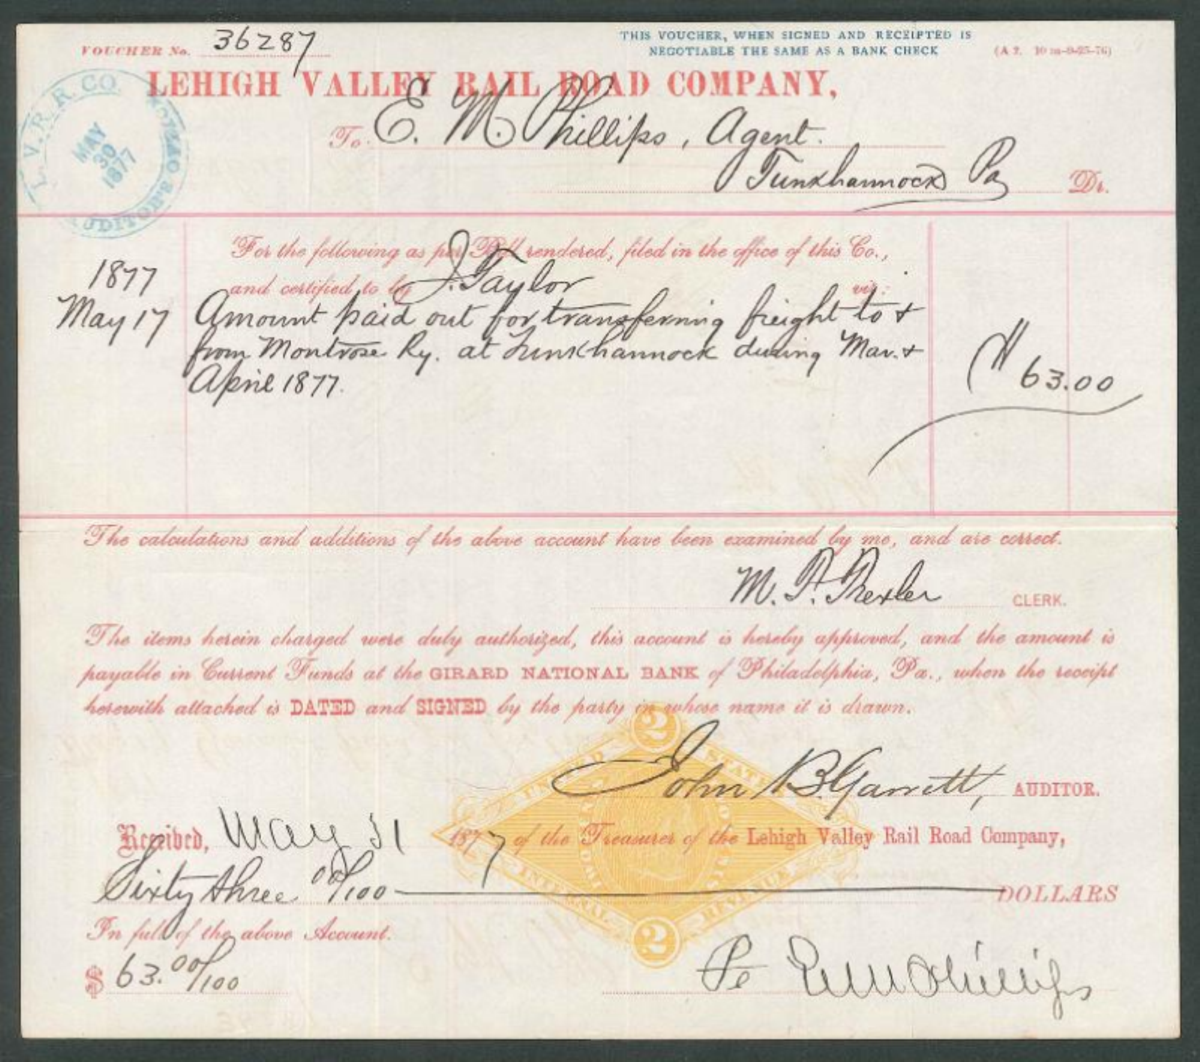 VOUCHER No. 36287
THIS VOUCHER, WHEN SIGNED AND RECEIPTED IS
NEGOTIABLE THE SAME AS A BANK CHECK
(A 2. 10 m-9-25-76)
LEHIGH VALLEY RAIL ROAD COMPANY,
L. V. R. R. CO.
AUDITOR'S OFFICE
MAY
30
1877
To E. M. Phillips, Agent.
Tunkhannock Pa Dr.
For the following as per Bill rendered, filed in the office of this Co.,
1877 and certified to by J. Taylor viz:
May 17 Amount paid out for transferring freight to &
from Montrose Ry. at Tunkhannock during Mar. &
April 1877. 63.00
The calculations and additions of the above account have been examined by me, and are correct.
M. P. Trexler CLERK.
The items herein charged were duly authorized, this account is hereby approved, and the amount is
payable in Current Funds at the GIRARD NATIONAL BANK of Philadelphia, Pa., when the receipt
herewith attached is DATED and SIGNED by the party in whose name it is drawn.
2
UNITED STATES
John B. Garrett, AUDITOR.
Received, May 31 1877 of the Treasurer of the Lehigh Valley Rail Road Company,
Sixty three 00/100 DOLLARS
INTERNAL REVENUE
In full of the above Account.
2
$ 63.00/100
E M Phillips